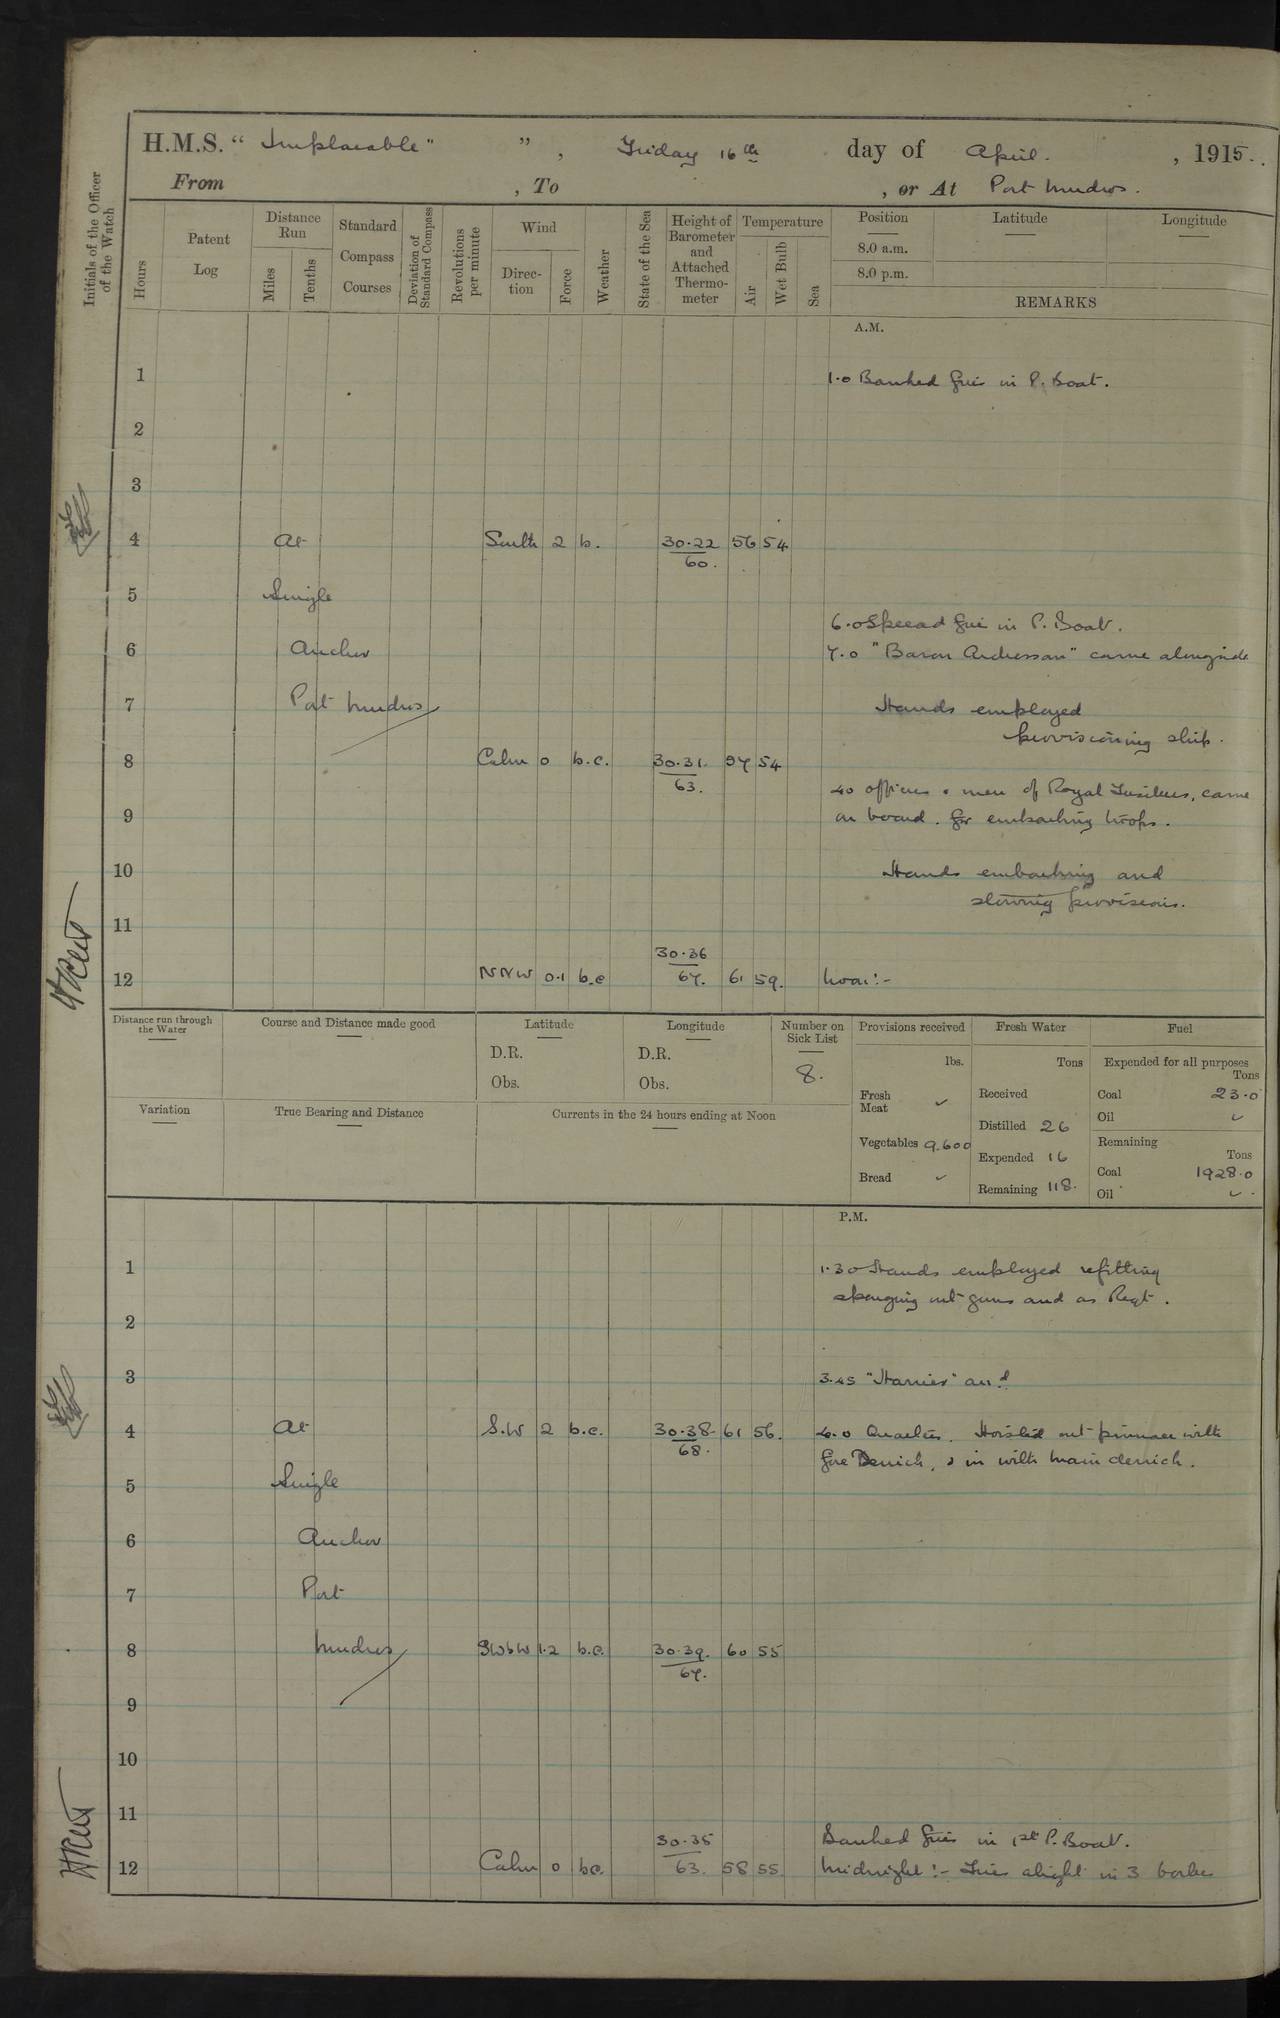 H.M.S. “ Implacable" ” , Friday 16th day of April. , 1915..
From , To , or At Port Mudros.
Initials of the Officer of the Watch
Hours
Patent Log
Distance Run
Miles
Tenths
Standard Compass Courses
Deviation of Standard Compass
Revolutions per minute
Wind
Direction
Force
Weather
State of the Sea
Height of Barometer and Attached Thermometer
Temperature
Air
Wet Bulb
Sea
Position Latitude Longitude
8.0 a.m.
8.0 p.m.
REMARKS
A.M.
1 1.0 Banked fires in P. Boat.
2
3
4 At South 2 b. 30.22 56 54
60.
5 Single
6.0 Spread fire in P. Boat.
6 Anchor 7.0 "Baron Ardrossan" came alongside
7 Port Mudros Hands employed
provisioning ship.
8 Calm 0 b.c. 30.31. 57 54
63.
40 officers & men of Royal Fusiliers, came
9 on board. for embarking troops.
10 Hands embarking and
stowing provisions.
11
30.36
12 NNW 0.1 b.c 67. 61 59. Noon:-
Distance run through the Water
Course and Distance made good
Latitude
D.R.
Obs.
Longitude
D.R.
Obs.
Number on Sick List
8.
Provisions received
lbs.
Fresh Meat ✓
Vegetables 9.600
Bread ✓
Fresh Water
Tons
Received
Distilled 26
Expended 16
Remaining 118.
Fuel
Expended for all purposes
Tons
Coal 23.0
Oil ✓
Remaining
Tons
Coal 1928.0
Oil ✓
Variation
True Bearing and Distance
Currents in the 24 hours ending at Noon
P.M.
1 1.30 Hands employed refitting
sponging out guns and as Reqt.
2
3 3.45 "Harrier" arrd
4 At S.W 2 b.c. 30.38 61 56. 4.0 Quarters. Hoisted out pinnace with
68. fore Derrick, & in with main derrick.
5 Single
6 Anchor
7 Port
8 Mudros SWbW 1.2 b.c. 30.39. 60 55
67.
9
10
11
30.35 Banked fires in 1st P. Boat.
12 Calm 0 bc. 63. 58 55. Midnight:- Fires alight in 3 boilers